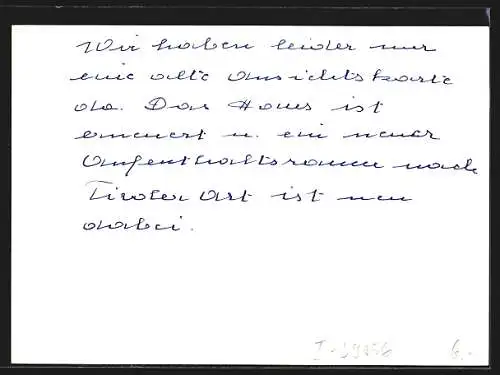 Wir haben leider nur
eine alte Ansichtskarte
da. Das Haus ist
erneuert u. ein neuer
Aufenthaltsraum nach
Tiroler Art ist neu
dabei.
6.-